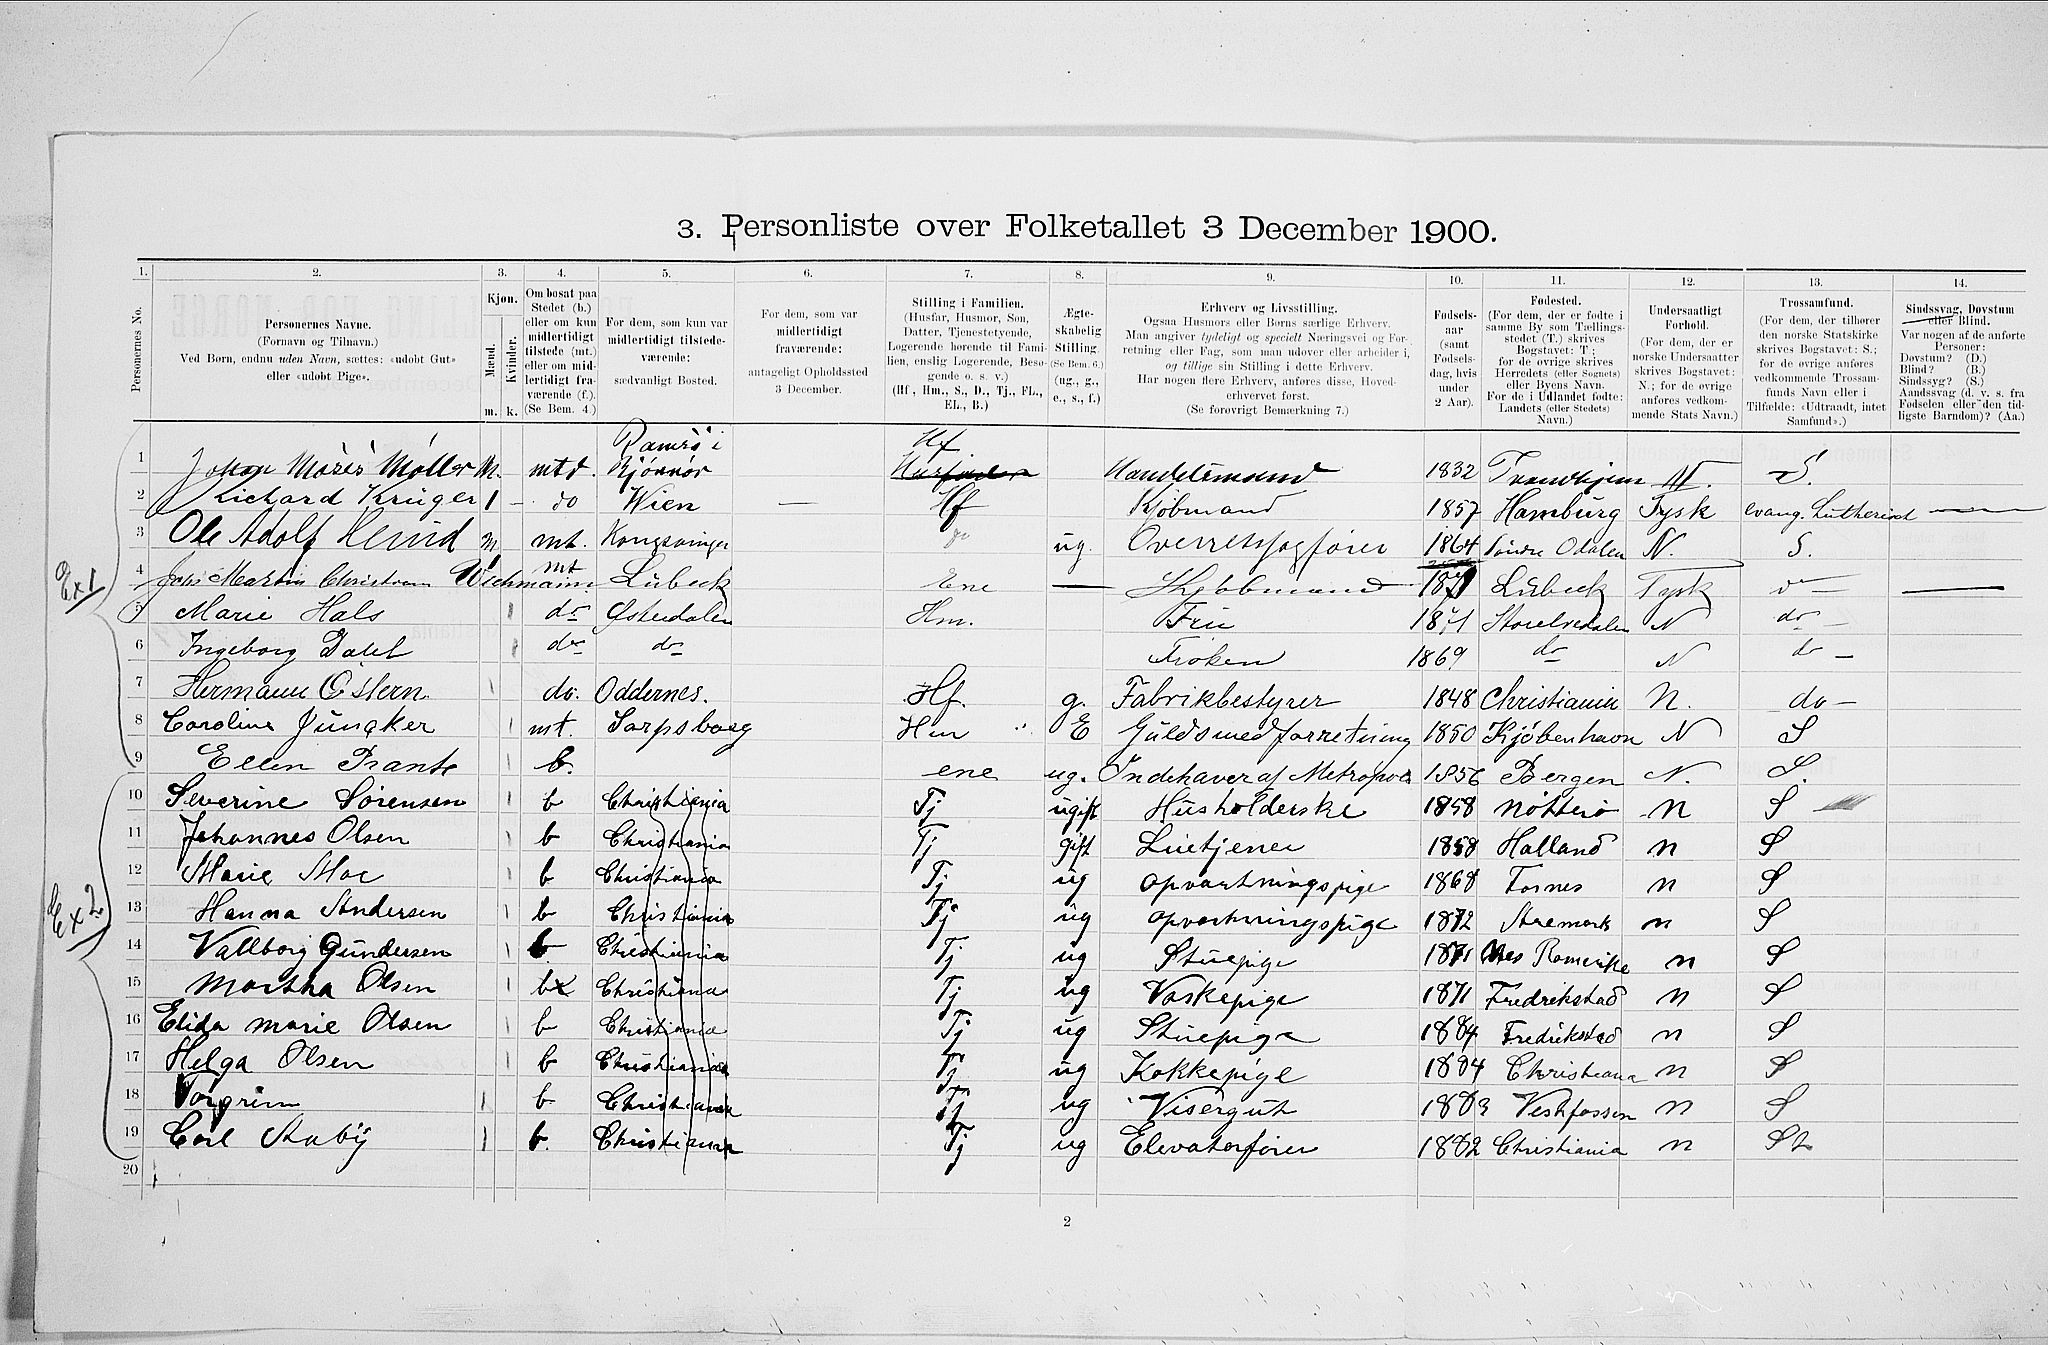 3. Personliste over Folketallet 3 December 1900.
1. 2. 3. 4. 5. 6. 7. 8. 9. 10. 11. 12. 13. 14.
Personernes No.
Personernes Navne.
(Fornavn og Tilnavn.)
Ved Børn, endnu uden Navn, sættes: «udøbt Gut»
eller «udøbt Pige».
Kjøn.
Mænd.
Kvinder.
m. k.
Om bosat paa
Stedet (b.)
eller om kun
midlertidigt
tilstede (mt.)
eller om mid-
lertidigt fra-
værende (f.).
(Se Bem. 4.)
For dem, som kun var
midlertidigt tilstede-
værende:
sædvanligt Bosted.
For dem, som var
midlertidigt
fraværende:
antageligt Opholdssted
3 December.
Stilling i Familien.
(Husfar, Husmor, Søn,
Datter, Tjenestetyende,
Logerende hørende til Fami-
lien, enslig Logerende, Besø-
gende o. s. v.)
(Hf, Hm., S., D., Tj., FL.,
EL., B.)
Ægte-
skabelig
Stilling.
(Se Bem. 6.)
(ug., g.,
e., s., f.)
Erhverv og Livsstilling.
Ogsaa Husmors eller Børns særlige Erhverv.
Man angiver tydeligt og specielt Næringsvei og For-
retning eller Fag, som man udøver eller arbeider i,
og tillige sin Stilling i dette Erhverv.
Har nogen flere Erhverv, anføres disse, Hoved-
erhvervet først.
(Se forøvrigt Bemærkning 7.)
Fødsels-
aar
(samt
Fødsels-
dag, hvis
under
2 Aar).
Fødested.
(For dem, der er fødte i
samme By som Tællings-
stedet (T.) skrives
Bogstavet: T.;
for de øvrige skrives
Herredets (eller Sognets)
eller Byens Navn.
For de i Udlandet fødte:
Landets (eller Stedets)
Navn.)
Undersaatligt
Forhold.
(For dem, der er
norske Undersaatter
skrives Bogstavet:
N.; for de øvrige
anføres vedkom-
mende Stats Navn.)
Trossamfund.
(For dem, der tilhører
den norske Statskirke
skrives Bogstavet: S.;
for de øvrige anføres
vedkommende Trossam-
funds Navn eller i
Tilfælde: «Udtraadt, intet
Samfund».)
Sindssvag, Døvstum
eller Blind.
Var nogen af de anførte
Personer:
Døvstum? (D.)
Blind? (B.)
Sindssyg? (S.)
Aandssvag (d. v. s. fra
Fødselen eller den tid-
ligste Barndom)? (Aa.)
Ex 1
1 Johan Møller M. mtd. i Bjørnør Hf Handelsmand 1832 Trondhjem N. S.
2 Richard Krüger 1 – do Wien — Hf Kjøbmand 1857 Hamburg Tysk evang. Lutherisk —
3 Ole Adolf m mt. Kongsvinger do ug. Overretssagfører 1864 Søndre Odalen N. S.
4 Martin Christian Wichmann mt Lübeck Ene — Kjøbmand 1871 Lübeck Tysk do — —
5 Marie Hals do Østerdalen Hm. Frue 1871 Storelvedalen N do –
6 Ingeborg do do Frøken 1869 do N do –
7 Hermann Østern do. Oddernes. Hf. g. Fabrikbestyrer 1848 Christiania N. do –
8 Caroline Juncker mt. Sarpsborg Hm E Guldsmedforretning 1850 Kjøbenhavn N S
9 Ellen b. ene ug. Indehaver af 1856 Bergen N. S.
Ex 2
10 Severine Sørensen b Christiania Tj ugift Husholderske 1858 Nøtterø N S
11 Johannes Olsen b Christiania Tj gift Lietjener 1858 Halland n S
12 Marie Moe b Christiania Tj ug opvartningspige 1868 n S
13 Hanna Andersen b Christiania Tj ug opvartningspige 1872 Aremark n S
14 Vallborg Gundersen b Christiania Tj ug Stuepige 1871 Nes Romerike n S
15 Martha Olsen b Christiania Tj ug Vaskepige 1871 Fredrikstad n S
16 Elida Marie Olsen b Christiania Tj ug Stuepige 1884 Fredrikstad n S
17 Helga Olsen b Christiania Tj ug Kokkepige 1884 Christiana n S
18 b Christiania Tj ug Visergut 1883 Vestfossen n S
19 Carl b. Christiania Tj ug Elevatorfører 1882 Christiania n S
20
2